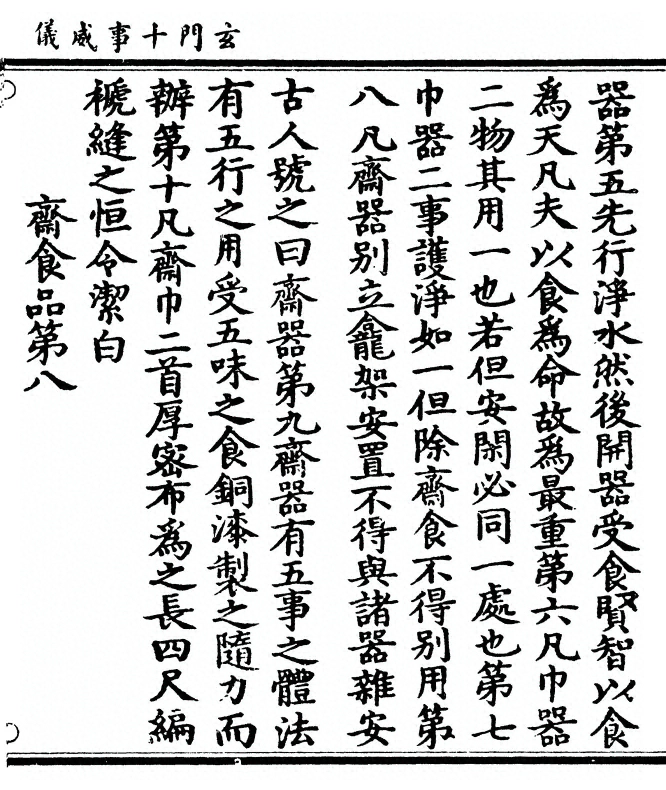 玄門十事威儀
器第五先行淨水然後開器受食賢智以食
爲天凡夫以食爲命故爲最重第六凡巾器
二物其用一也若但安閑必同一處也第七
巾器二事護淨如一但除齋食不得别用第
八凡齋器别立龕架安置不得與諸器雜安
古人號之曰齋器第九齋器有五事之體法
有五行之用受五味之食銅漆製之隨力而
辦第十凡齋巾二首厚密布爲之長四尺編
褫縫之恒令潔白
齋食品第八